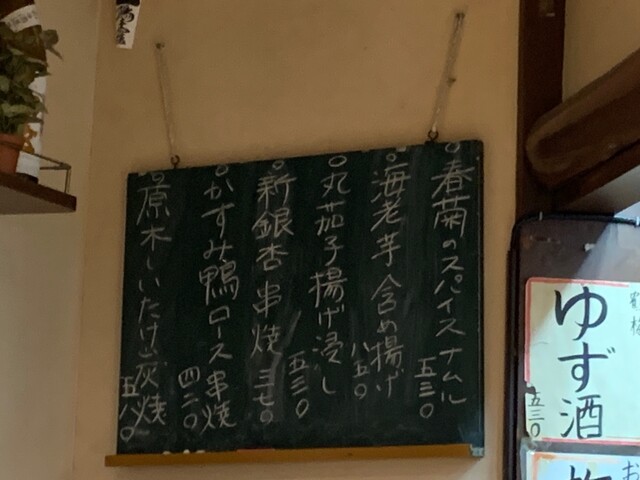 ○春菊のスパイスナムル 五三〇
○海老芋含め揚げ 八五〇
○丸茄子揚げ浸し 五三〇
○新銀杏串焼 三七〇
○かすみ鴨ロース串焼 四二〇
○原木しいたけ炭焼 五八〇
ゆず酒
五三〇